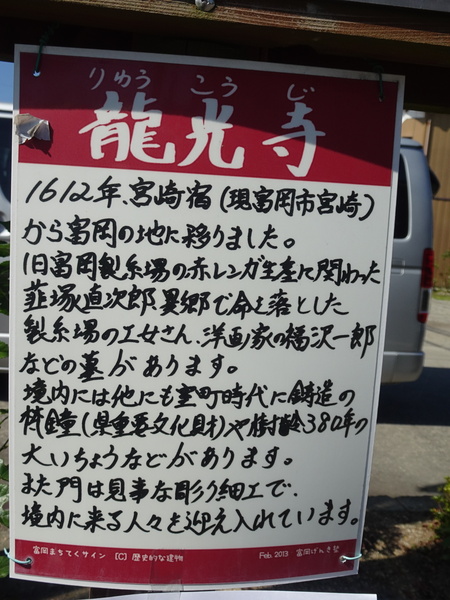 りゅう こう じ
龍光寺
1612年、宮崎宿(現富岡市宮崎)
から富岡の地に移りました。
旧富岡製糸場の赤レンガ生産に関わった
韮塚直次郎、異郷で命を落とした
製糸場の工女さん、洋画家の福沢一郎
などの墓があります。
境内には他にも室町時代に鋳造の
梵鐘(県重要文化財)や樹齢380年の
大いちょうなどがあります。
また門は見事な彫り細工で、
境内に来る人々を迎え入れています。
富岡まちてくサイン [C] 歴史的な建物 Feb. 2013 富岡げんき塾